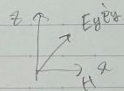 z
Eyêy
x
H